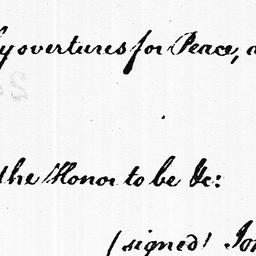 y overtures for Peace,
the Honor to be &c:
(signed) Jo